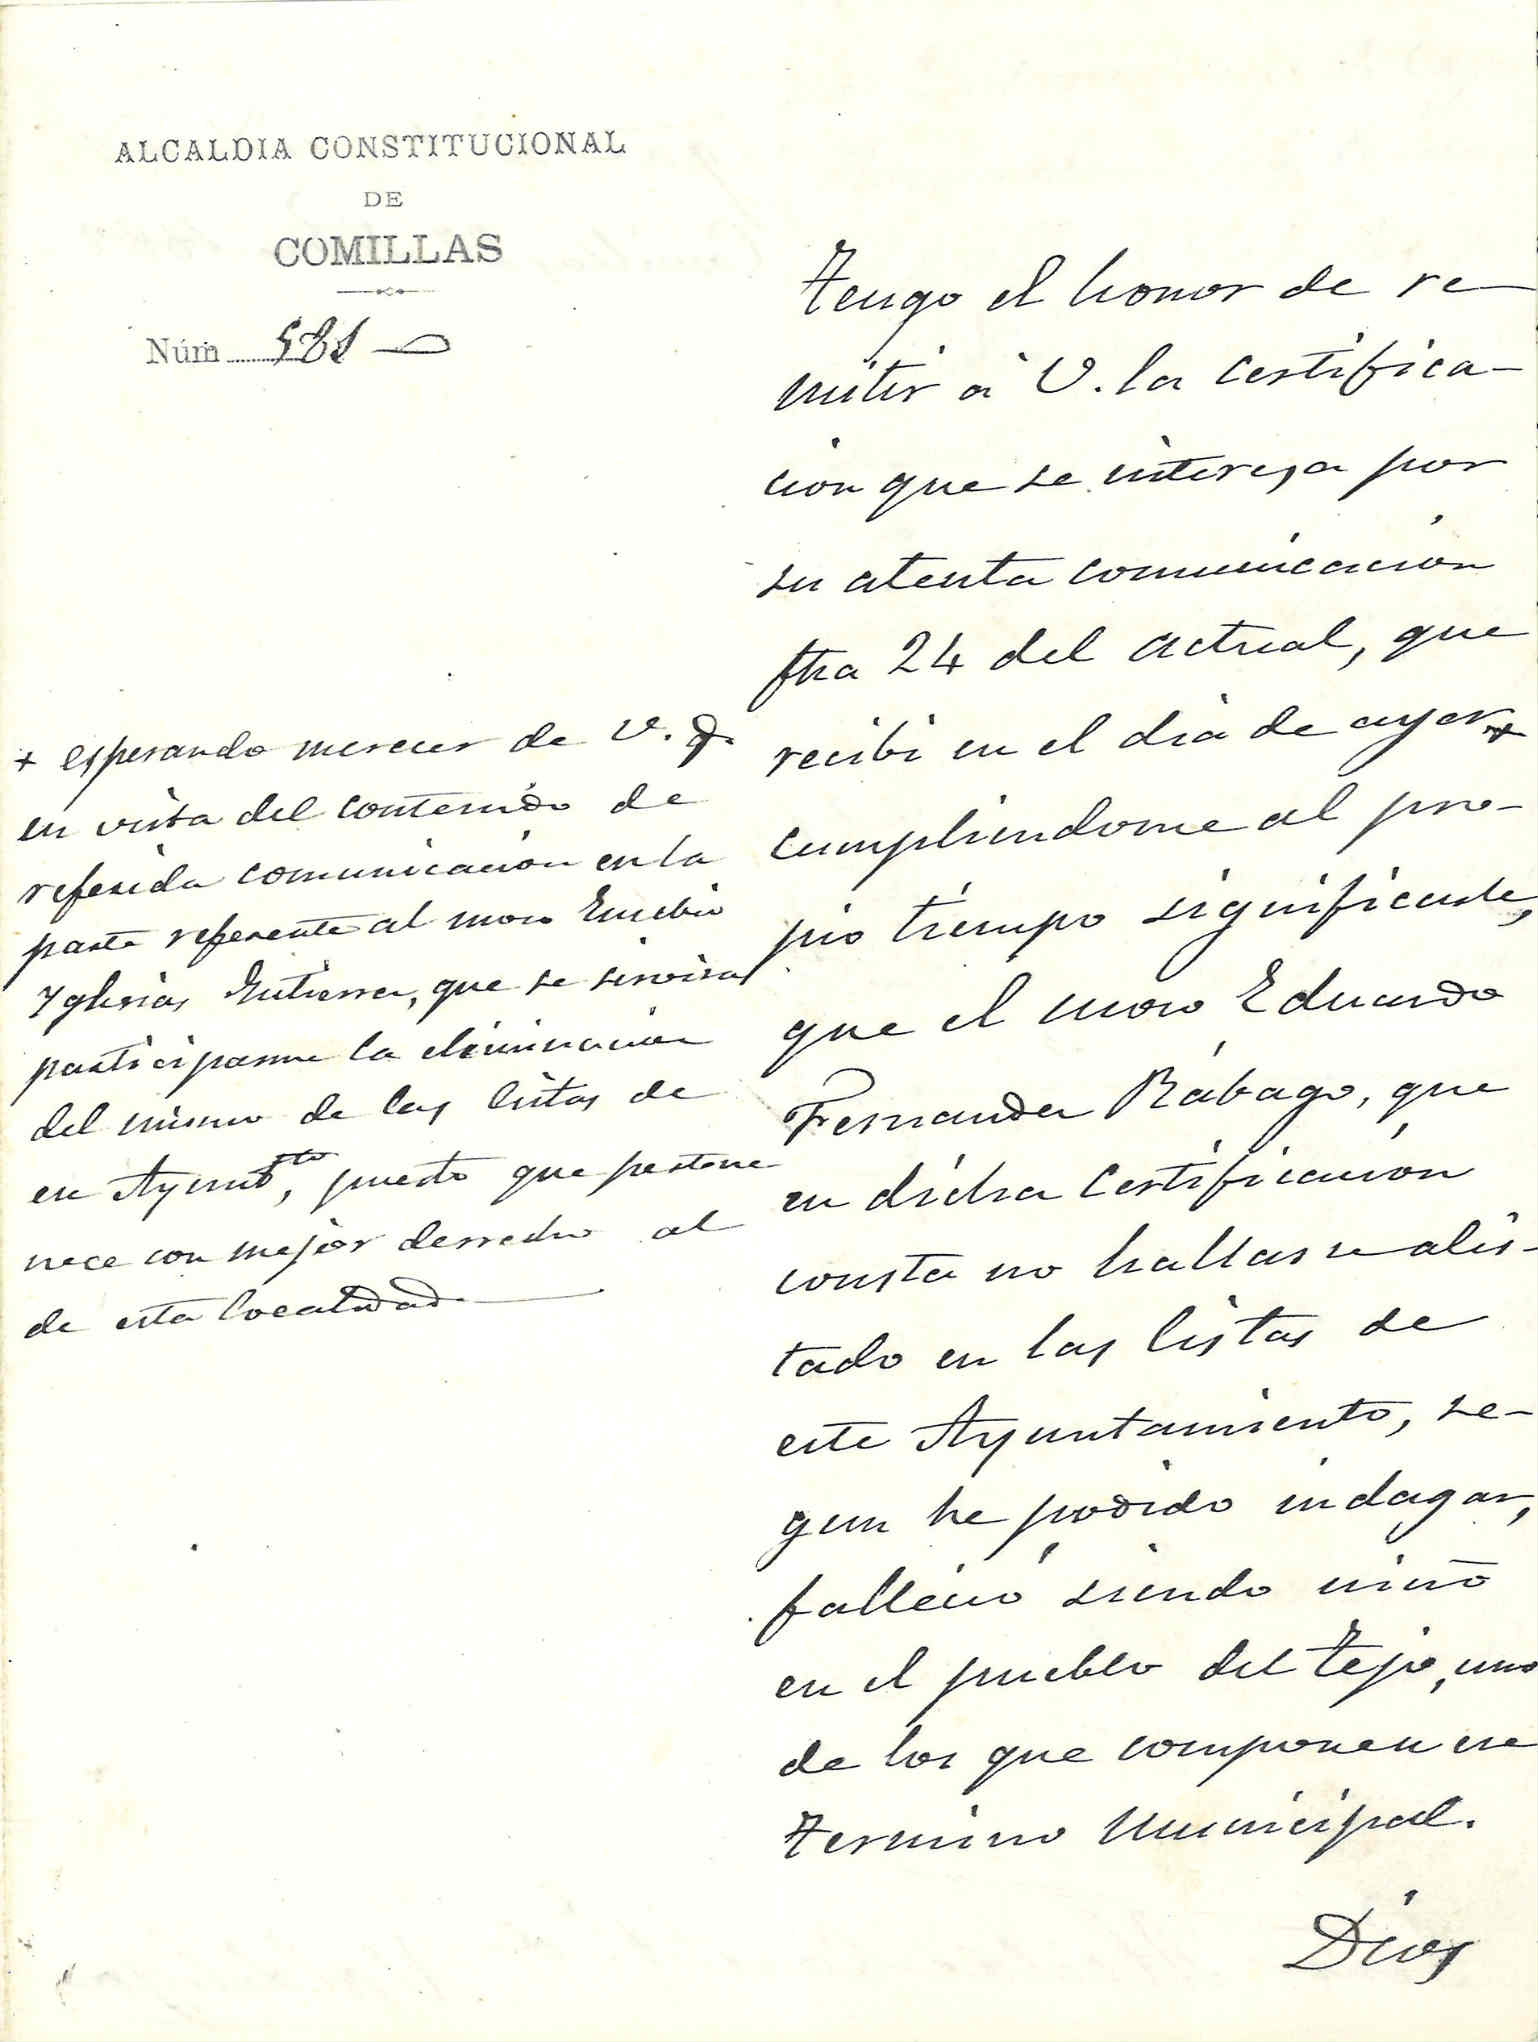 ALCALDIA CONSTITUCIONAL
DE
COMILLAS
Núm 581
Tengo el honor de re-
mitir á V. la certifica-
cion que se interesa por
su atenta comunicación
fha 24 del actual, que
recibi en el dia de ayer +
cumpliendome al pro-
pio tiempo significarle,
que el mozo Eduardo
Fernandez Rábago, que
en dicha certificación
consta no hallarse alis-
tado en las listas de
este Ayuntamiento, se-
gun he podido indagar,
falleció siendo niño
en el pueblo del Tejo, uno
de los que componen ese
termino municipal.
Dios
+ esperando merecer de V. q.
en vista del contenido de
referida comunicacion en la
parte referente al mozo Eusebio
Yglesias Gutierrez, que se servirá
participarme la eliminacion
del mismo de las listas de
ese Ayunt.to, puesto que pertene
nece con mejor derrecho al
de esta localidad.